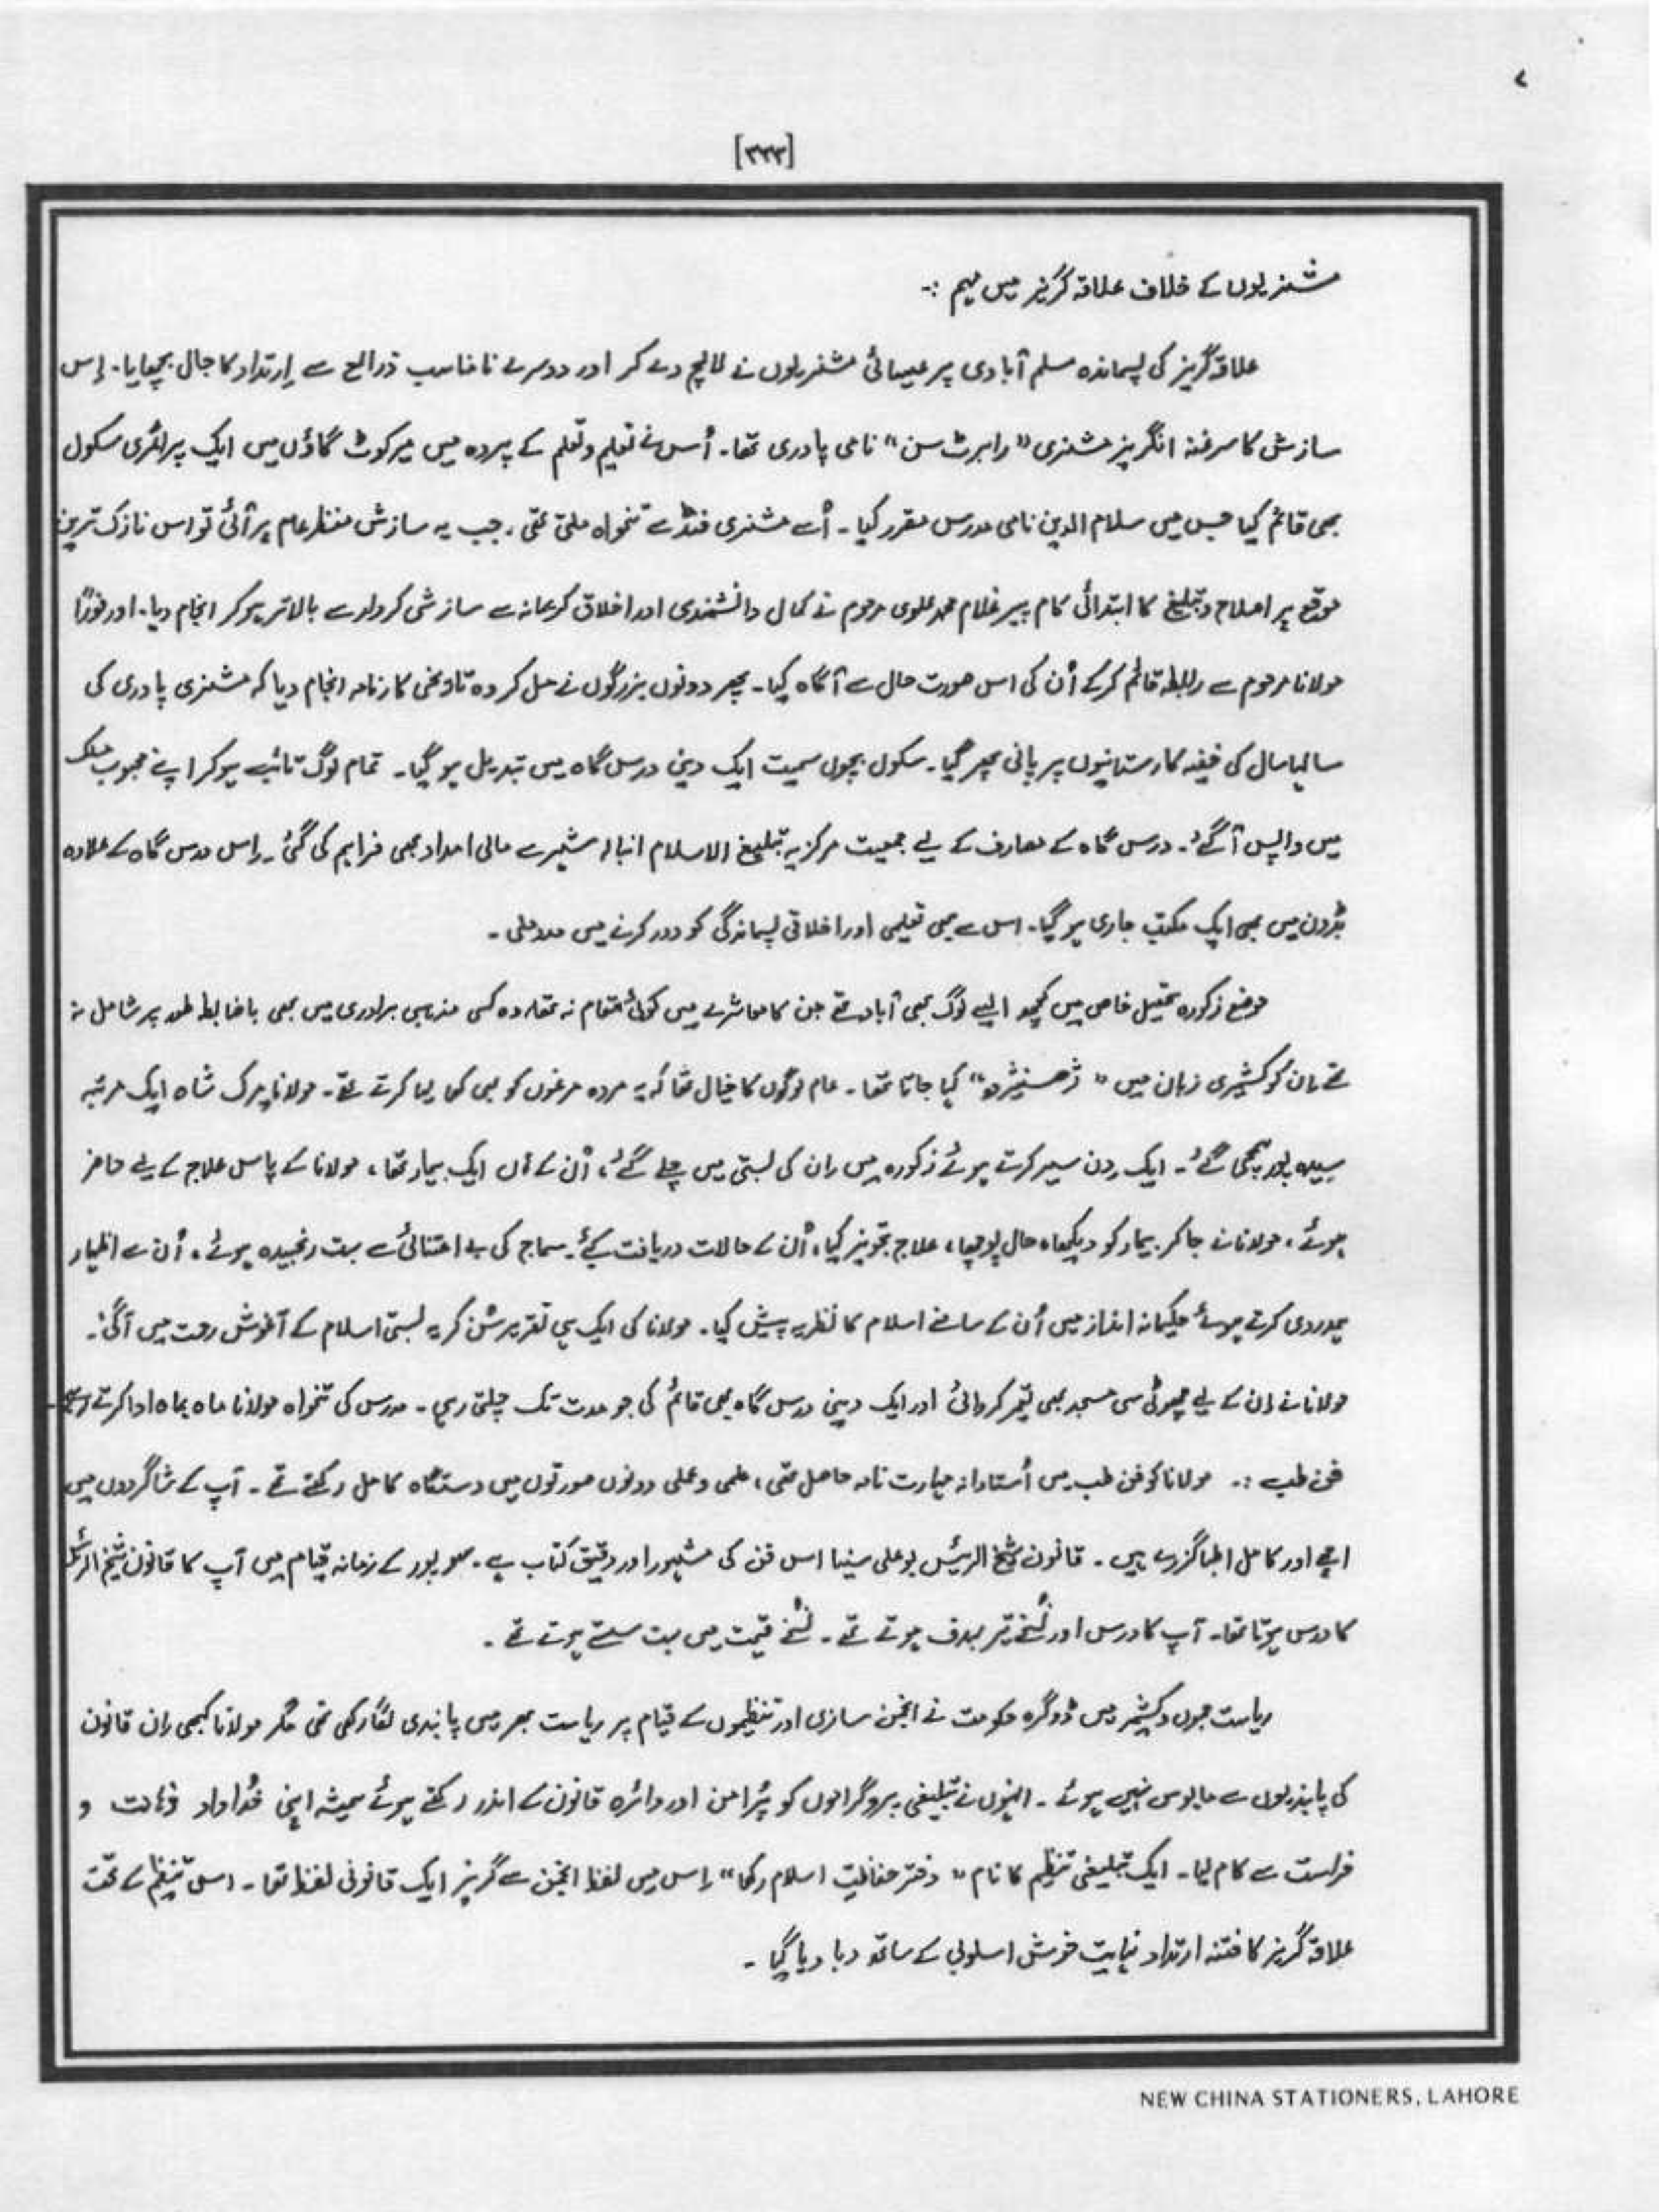 ۷
[۳۳۳]
مشنریوں کے خلاف علاقہ گریز میں مہم :-
علاقہ گریز کی پسماندہ مسلم آبادی پر عیسائی مشنریوں نے لالچ دے کر اور دوسرے نامناسب ذرائع سے اِرتداد کا جال بچھایا۔ اِس
سازش کا سرغنہ انگریز مشنری "رابرٹ سن" نامی پادری تھا۔ اُس نے تعلیم و تعلم کے پردہ میں میرکوٹ گاؤں میں ایک پرائمری سکول
بھی قائم کیا جس میں سلام الدین نامی مدرس مقرر کیا۔ اُسے مشنری فنڈ سے تنخواہ ملتی تھی۔ جب یہ سازش منظر عام پر آئی تو اس نازک ترین
موقع پر اصلاح و تبلیغ کا ابتدائی کام پیر غلام محمد علوی مرحوم نے کمال دانشمندی اور اخلاق کریمانہ سے سازشی کردار سے بالاتر ہو کر انجام دیا۔ اور فوراً
مولانا مرحوم سے رابطہ قائم کر کے اُن کی اس صورت حال سے آگاہ کیا۔ پھر دونوں بزرگوں نے مل کر وہ تاریخی کارنامہ انجام دیا کہ مشنری پادری کی
سالہا سال کی خفیہ کارستانیوں پر پانی پھر گیا۔ سکول بچوں سمیت ایک دینی درس گاہ میں تبدیل ہو گیا۔ تمام لوگ تائب ہو کر اپنے محبوب مسلک
میں واپس آ گئے۔ درس گاہ کے مصارف کے لیے جمعیت مرکزیہ تبلیغ الاسلام انبالہ شہر سے مالی امداد بھی فراہم کی گئی۔ اِس درس گاہ کے علاوہ
میں بھی ایک مکتب جاری ہو گیا۔ اس سے بھی تعلیمی اور اخلاقی پسماندگی کو دور کرنے میں مدد ملی۔
موضع زکورہ تحصیل خاص میں کچھ ایسے لوگ بھی آباد تھے جن کا معاشرے میں کوئی مقام نہ تھا۔ وہ کسی مذہبی برادری میں بھی باضابطہ طور پر شامل نہ
تھے۔ اِن کو کشمیری زبان میں کہا جاتا تھا۔ عام لوگوں کا خیال تھا کہ یہ مردہ مرغوں کو بھی کھا لیا کرتے تھے۔ مولانا میرک شاہ ایک مرتبہ
سیدہ پور گئے۔ ایک دن سیر کرتے ہوئے زکورہ میں اِن کی بستی میں چلے گئے، اُن کے ہاں ایک بیمار تھا، مولانا کے پاس علاج کے لیے حاضر
ہوئے، مولانا نے جا کر بیمار کو دیکھا، حال پوچھا، علاج تجویز کیا، اُن کے حالات دریافت کیے۔ سماج کی بے اعتنائی سے بہت رنجیدہ ہوئے، اُن سے اظہار
ہمدردی کرتے ہوئے حکیمانہ انداز میں اُن کے سامنے اسلام کا نظریہ پیش کیا۔ مولانا کی ایک ہی تقریر سُن کر یہ بستی اسلام کے آغوش رحمت میں آ گئی۔
مولانا نے اِن کے لیے چھوٹی سی مسجد بھی تعمیر کروائی اور ایک دینی درس گاہ بھی قائم کی جو مدت تک چلتی رہی۔ مدرس کی تنخواہ مولانا ماہ بماہ ادا کرتے رہے۔
فن طب :۔ مولانا کو فن طب میں اُستادانہ مہارت تامہ حاصل تھی، علمی و عملی دونوں صورتوں میں دستگاہ کامل رکھتے تھے۔ آپ کے شاگردوں میں
اچھے اور کامل اطبا گزرے ہیں۔ قانون شیخ الرئیس بو علی سینا اس فن کی مشہور اور دقیق کتاب ہے۔ پور کے زمانہ قیام میں آپ کا قانون شیخ الرئیس
کا درس ہوتا تھا۔ آپ کا درس اور نُسخے تیر بہدف ہوتے تھے۔ نُسخے قیمت میں بہت سستے ہوتے تھے۔
ریاست جموں و کشمیر میں ڈوگرہ حکومت نے انجمن سازی اور تنظیموں کے قیام پر ریاست بھر میں پابندی لگا رکھی تھی مگر مولانا کبھی اِن قانون
کی پابندیوں سے مایوس نہیں ہوئے۔ انہوں نے تبلیغی پروگراموں کو پُرامن اور دائرہ قانون کے اندر رکھتے ہوئے ہمیشہ اپنی خُداداد ذہانت و
فراست سے کام لیا۔ ایک تبلیغی تنظیم کا نام "دفتر حفاظتِ اسلام رکھا" اِس میں لفظ انجمن سے گریز ایک قانونی لفظ تھا۔ اس تنظیم کے تحت
علاقہ گریز کا فتنہ ارتداد نہایت خوش اسلوبی کے ساتھ دبا دیا گیا۔
NEW CHINA STATIONERS, LAHORE